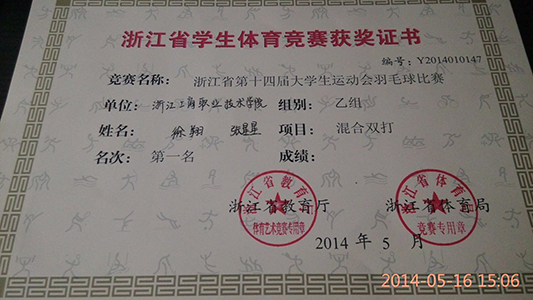 浙江省学生体育竞赛获奖证书
编号：Y2014010147
竞赛名称： 浙江省第十四届大学生运动会羽毛球比赛
单位： 浙江工商职业技术学院 组别： 乙组
姓名： 徐翔 张星星 项目： 混合双打
名次： 第一名 成绩：
浙江省教育厅 浙江省体育局
体育艺术竞赛专用章 竞赛专用章
浙江省教育厅 浙江省体育局
2014 年 5 月
2014-05-16 15:06